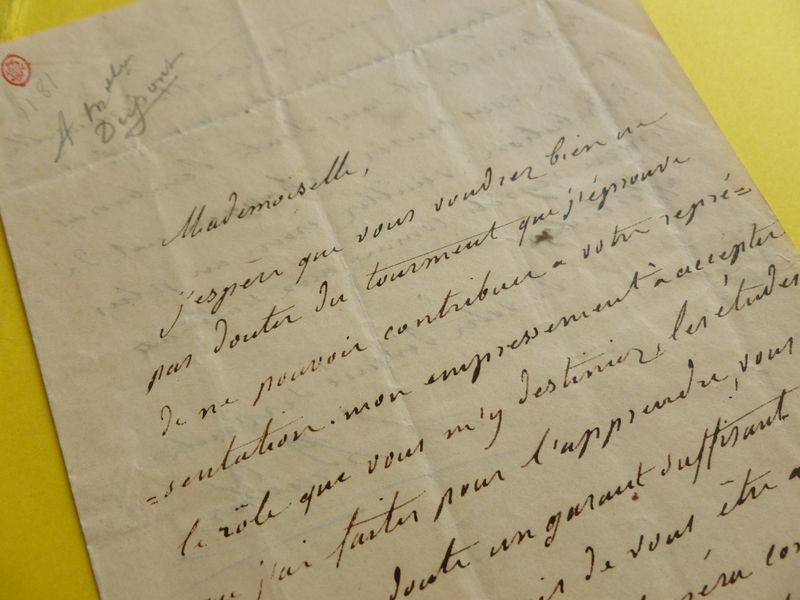 1181
A Mlle
Dupont
Mademoiselle,
J'espère que vous voudrez bien ne
pas douter du tourment que j'éprouve
de ne pouvoir contribuer a votre repré=
=sentation. mon empressement à accepter
le rôle que vous m'y destiniez, les études
que j'ai faites pour l'apprendre, vous
doute un garant suffisant
de vous être a